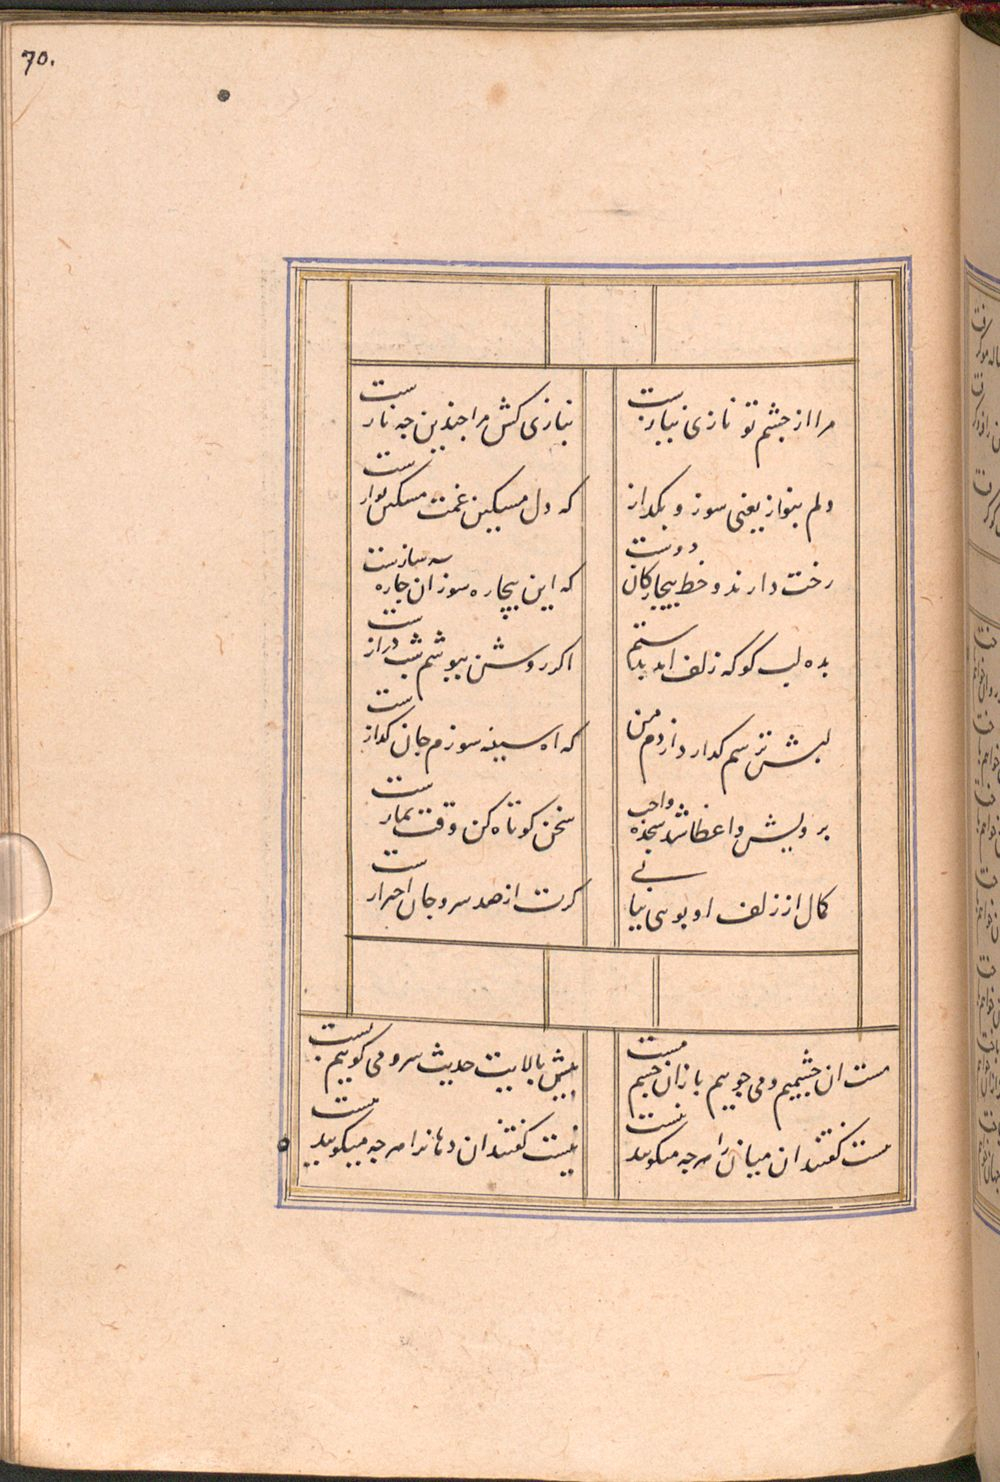 70.
مرا از چشم تو نازی نیازست
نیازی کش مرا چندین چه نازست
دلم بنواز یعنی سوز و بگداز
که دل مسکین غمت مسکین نوازست
رخت دارند و خط بیچارگان دوست
که این بیچاره سوز ان چاره سازست
اگر روشن بپوشم شب درازست
لبش ترسم گدازد از دم من
که اه سینه سوزم جان گدازست
برویش واعظا شد سجده واجب
سخن کوتاه کن وقت نمازست
کمال از زلف او بویی نیابی
گرت از صد سر و جان احترازست
مست ان چشمیم و می جوییم باز ان چشم مست
پیش بالایت حدیث سرو می گوییم پست
هست گفتند ان میان را هر چه میگویند هست
نیست گفتند ان دهانرا هر چه میگویید نیست